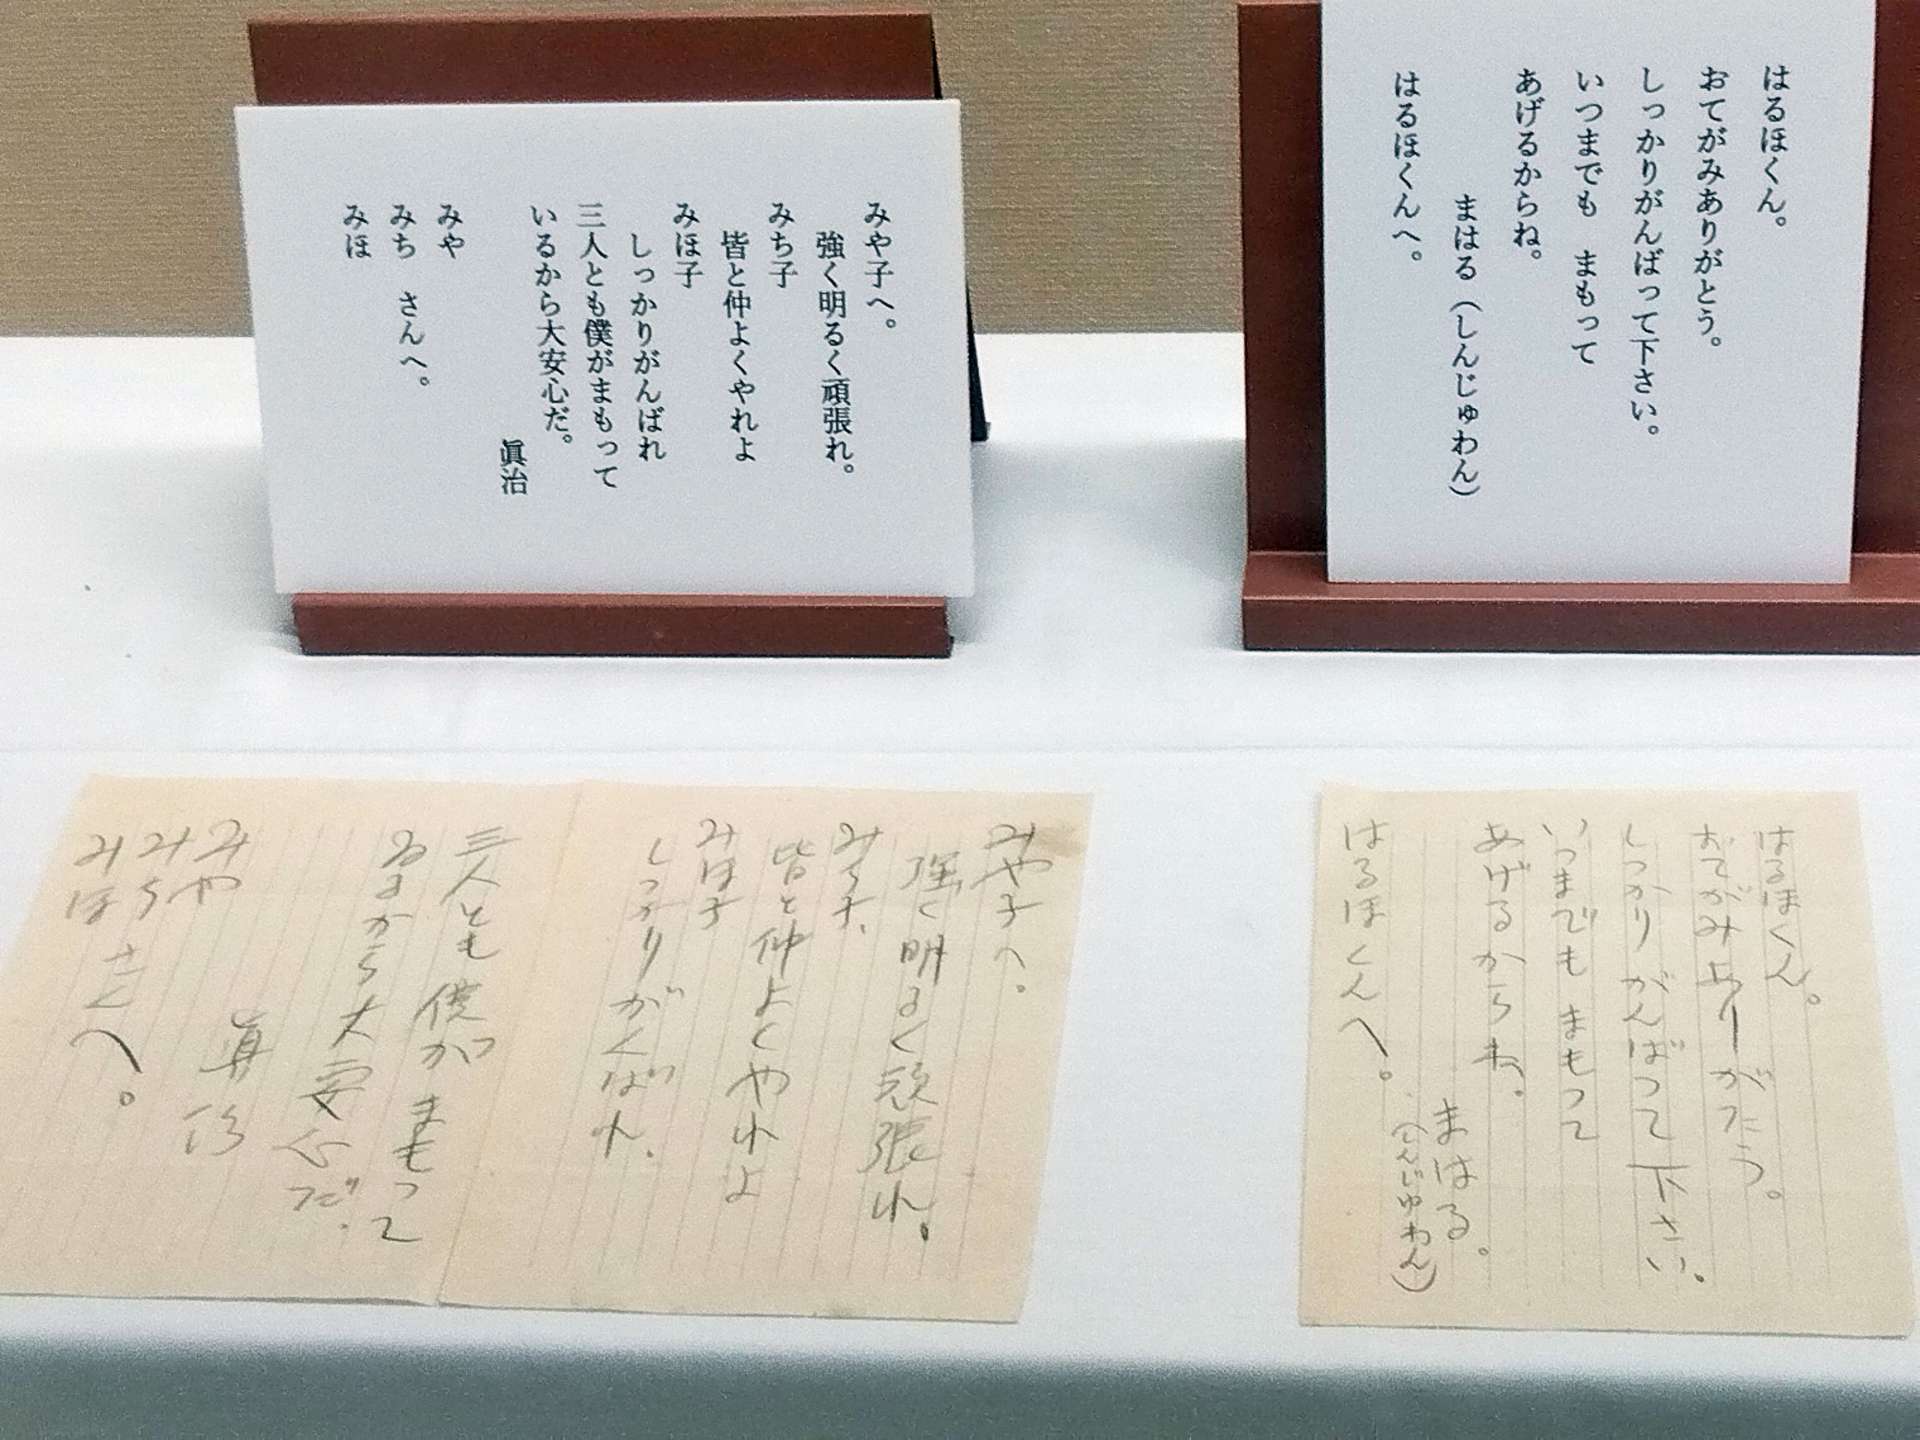 はるほくん。
おてがみありがとう。
しっかりがんばって下さい。
いつまでも　まもって
あげるからね。
まはる（しんじゅわん）
はるほくんへ。
みや子へ。
強く明るく頑張れ。
みち子
皆と仲よくやれよ
みほ子
しっかりがんばれ
三人とも僕がまもって
いるから大安心だ。
眞治
みや
みち　さんへ。
みほ
はるほくん。
おてがみありがたう。
しつかりがんばつて下さい。
いつまでも　まもつて
あげるからね。
まはる。
（しんじゆわん）
はるほくんへ。
みや子へ。
強く明るく頑張れ。
みち子、
皆と仲よくやれよ
みほ子
しつかりがんばれ、
三人とも僕がまもつて
ゐるから大安心だ。
眞治
みや
みち　さんへ。
みほ